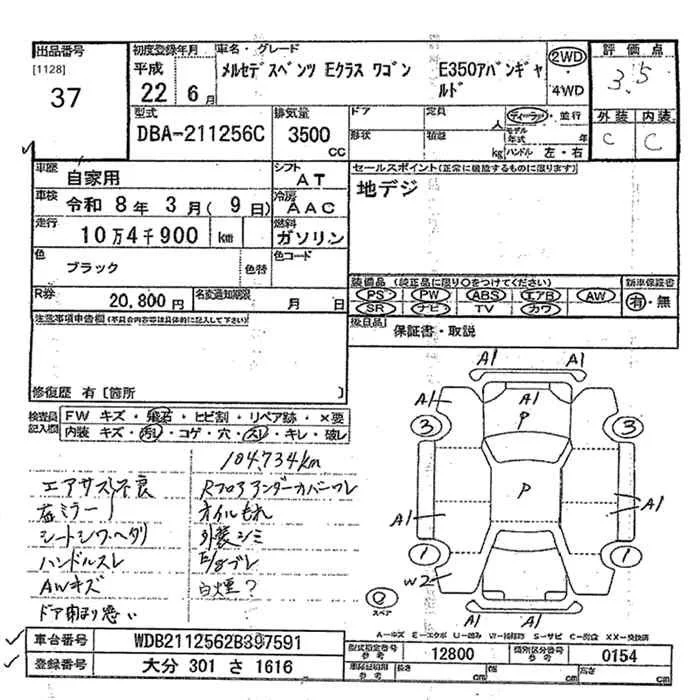 出品番号
[1128]
37
初度登録年月
平成
22年 6月
車名・グレード
メルセデスベンツ Eクラス ワゴン E350アバンギャルド
2WD
・
4WD
評価点
3.5
外装 内装
C C
型式
DBA-211256C
排気量
3500
CC
ドア
定員
人
形状
積載
kg
ディーラー・並行
モデル年式 年
ハンドル 左・右
車歴
自家用
シフト
AT
車検
令和 8年 3月( 9日)
冷房
AAC
走行
10万4千900 km
燃料
ガソリン
色
ブラック
色替
色コード
R券
20,800円
名変通知期限
月 日
セールスポイント(正常に機能するものに限ります)
地デジ
装備品 (純正品に限り○をつけてください)
新車保証書
PS PW ABS エアB AW
有・無
SR ナビ TV カワ
後日品
保証書・取説
注意事項申告欄(不具合内容等は具体的に記入して下さい)
修復歴 有[箇所 ]
検査員記入欄
FW キズ・飛石・ヒビ割・リペア跡・×要
内装 キズ・汚レ・コゲ・穴・スレ・キレ・破レ
104,734km
エアサス不良
右ミラー
シートシワ・ヘタリ
ハンドルスレ
AWキズ
ドア閉まり悪い
Rフロアアンダーカバーワレ
オイルもれ
外装シミ
E/gブレ
白煙?
A1 A1
A1 A1
P
3 3
P
A1 A1
1 1
W2
A1 A1
スペア
A-キズ E-エクボ U-凹み W-補修跡 S-サビ C-腐食 XX-交換済
車台番号
WDB2112562B397591
登録番号
大分 301 さ 1616
型式指定番号
参考
12800
類別区分番号
参考
0154
車庫証明用
参考
長さ cm
幅 cm
高さ cm